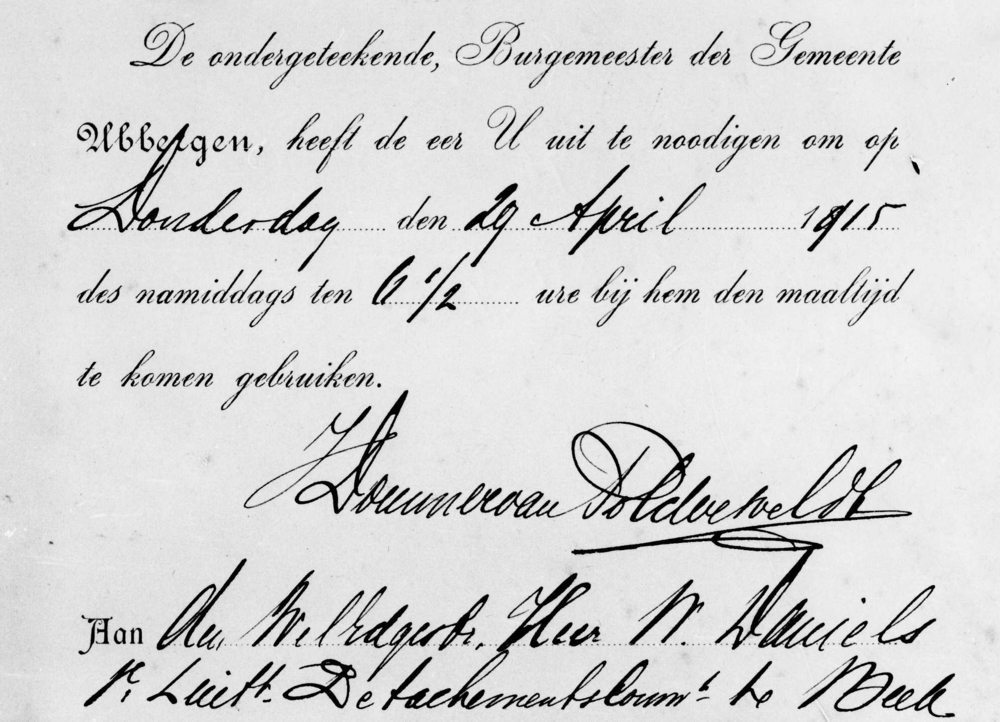 De ondergeteekende, Burgemeester der Gemeente
Ubbergen, heeft de eer U uit te noodigen om op
Donderdag den 29 April 1915
des namiddags ten 6 1/2 ure bij hem den maaltijd
te komen gebruiken.
van Polderveldt
Aan den WelEdgestr. Heer W. Daniels
1e Luitt. Detachementscommt te Beek